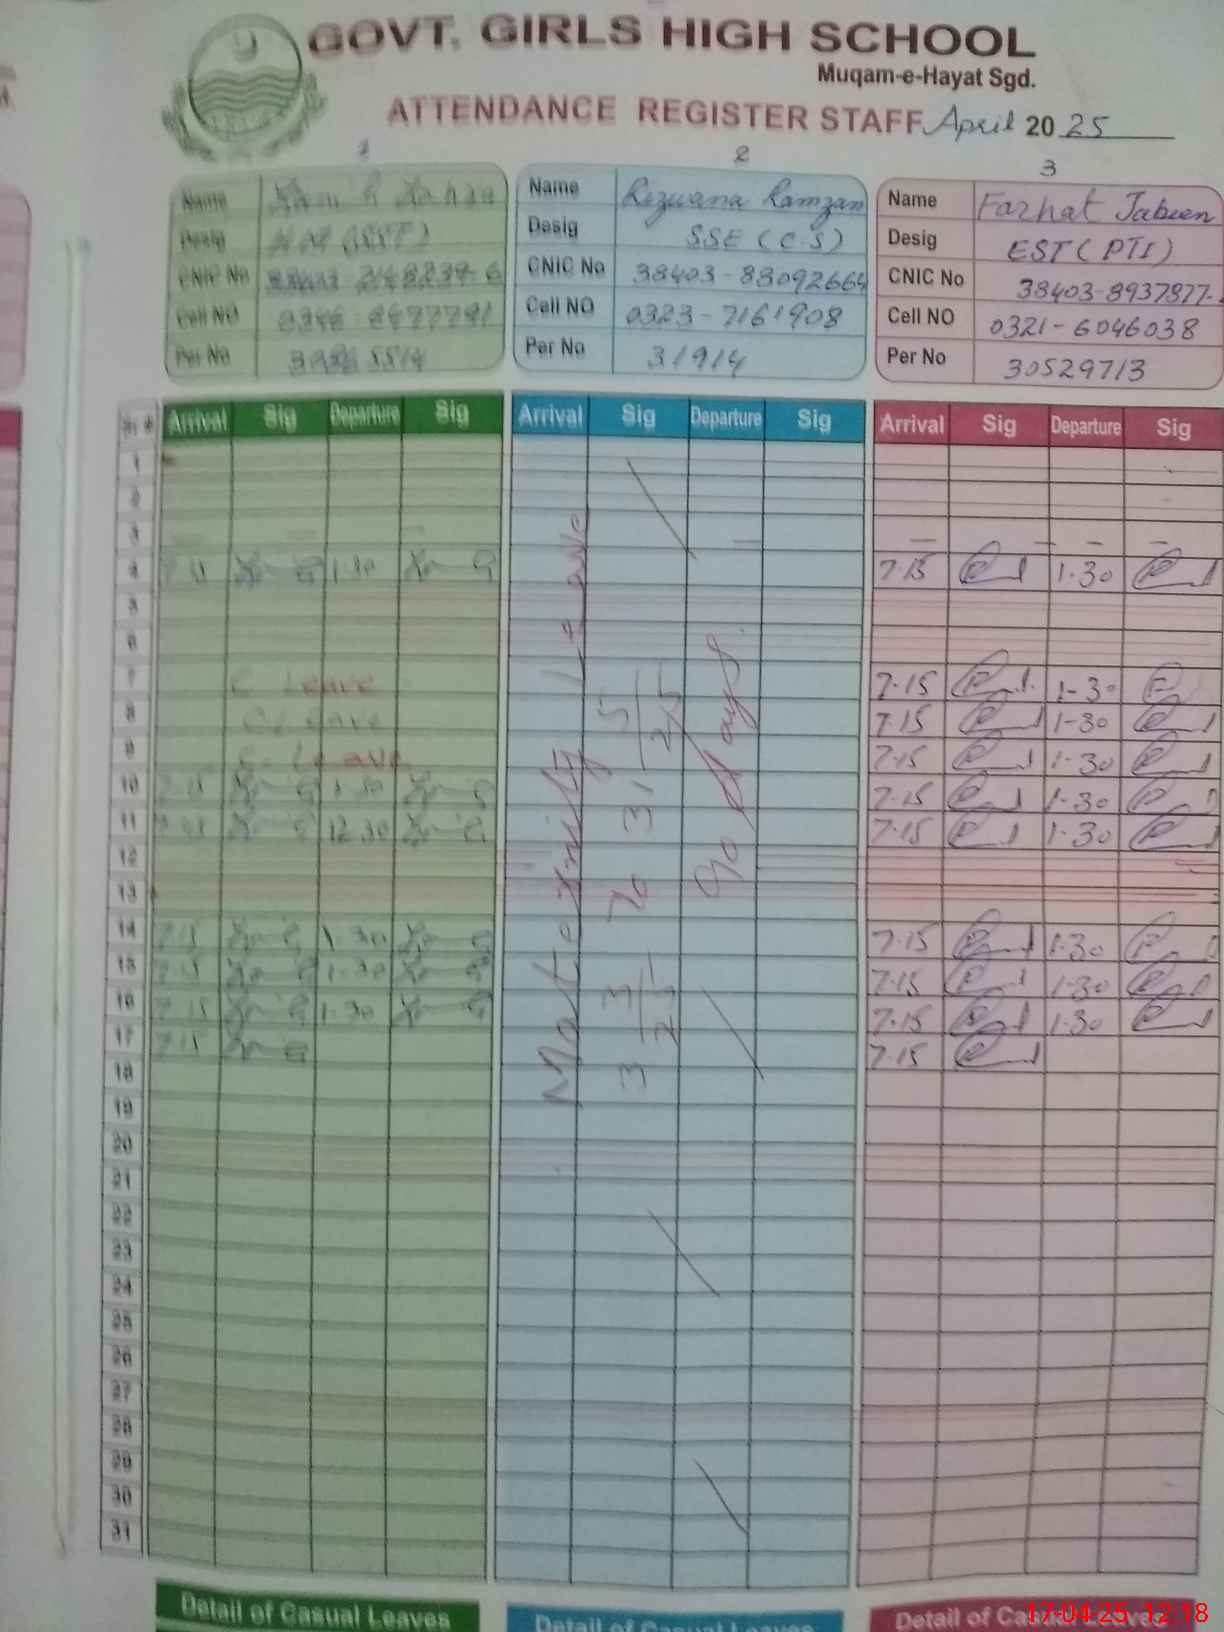 GOVT. GIRLS HIGH SCHOOL
Muqam-e-Hayat Sgd.
ATTENDANCE REGISTER STAFF April 20 25
1 2 3
Name
Desig (SST)
CNIC No
Cell NO
Per No
Name Rizwana Ramzan
Desig SSE (C.S)
CNIC No 38403-88092664
Cell NO 0323-7161908
Per No 31914
Name Farhat Jabeen
Desig EST (PTI)
CNIC No 38403-8937877-
Cell NO 0321-6046038
Per No 30529713
Arrival Sig Departure Sig Arrival Sig Departure Sig Arrival Sig Departure Sig
1
2
3
4 1.30 7.15 1.30
5
6
7 C Leave 7.15 1-30
8 C Leave 7.15 1-30
9 C. Leave 7.15 1-30
10 1.30 7.15 1-30
11 12.30 7.15 1-30
12
13
14 7.15 1.30 7.15 1-30
15 7.15 1.30 7.15 1-30
16 7.15 1.30 7.15 1-30
17 7.15 7.15
18
19
20
21
22
23
24
25
26
27
28
29
30
31
Maternity Leave
3 3/25 To 31 5/25
90 days.
Detail of Casual Leaves Detail of Casual Leaves Detail of Casual Leaves
17-04-25 12:18